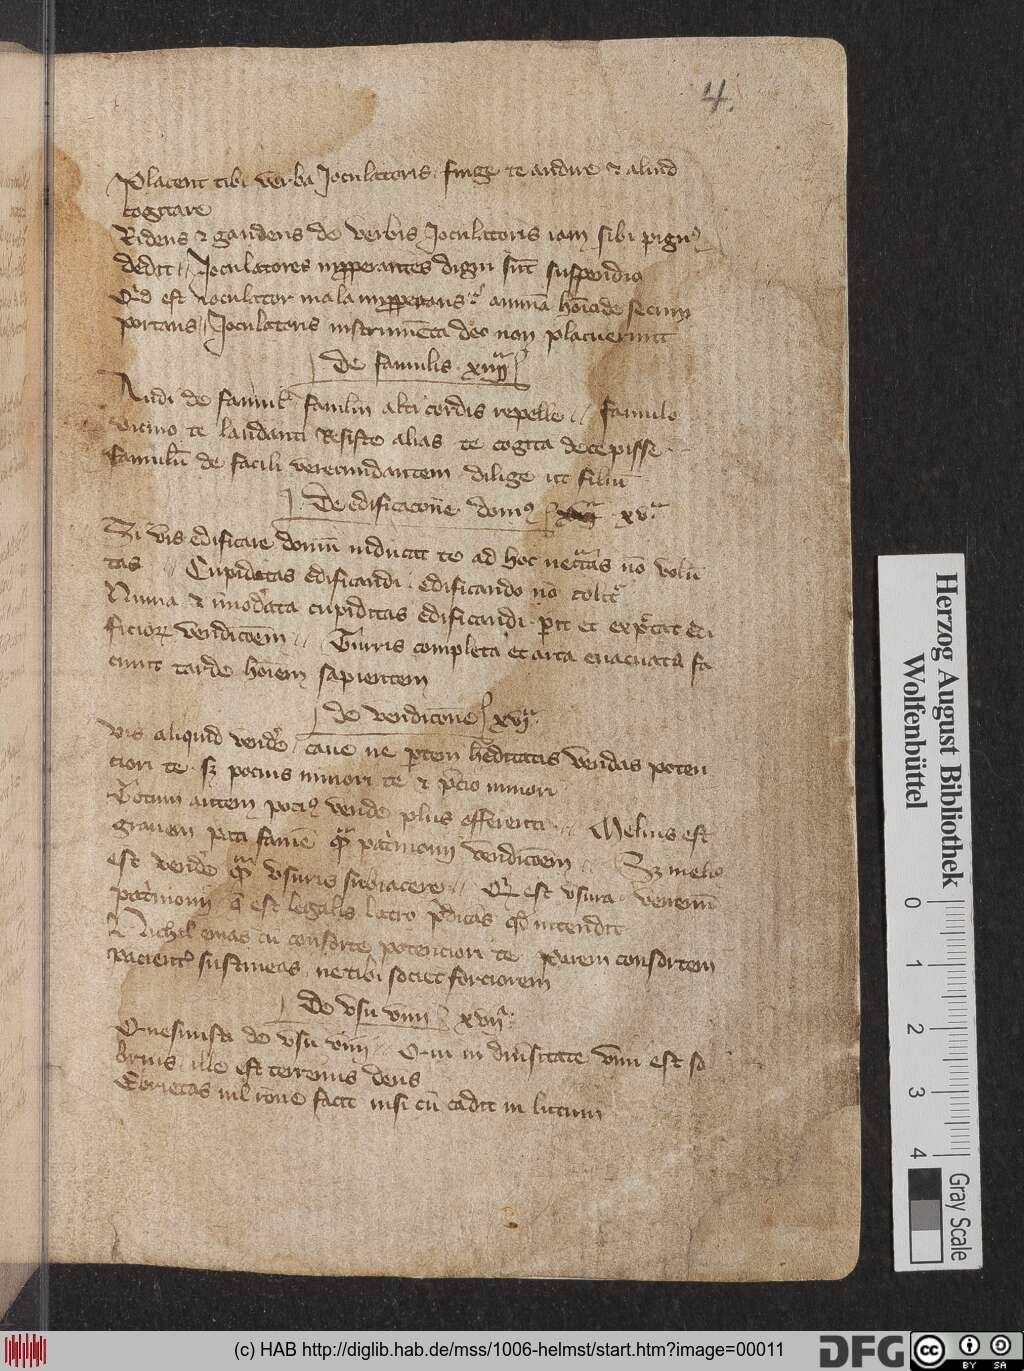 4.
Placent tibi v̄ba Joculatoris finge te audire ⁊ aliud
cogitare
Ridens ⁊ gaudens de verbis Joculatoris iam sibi pignꝰ
dedit // Joculatores impperantes digni sūt suspendio
portans / Joculatoris instrumēta deo non placuerunt
De famulis xiiij
Audi de famul famlm alti cordis repelle // famulo
vicino te laudanti Resiste alias te cogita decepisse
famulū de facili verecundantem dilige ut filiū
De edificacōne domꝰ xvᵃ
Si vis edificare domū inducat te ad hoc necītas nō volū
tas // Cupiditas edificandi edificando nō tollit
Nimia ⁊ īmod'ata cupiditas edificandi p̄it et exp̄ctat edi
ficioꝝ vendicōem // Turris completa et arca euacuata fa
ciunt tarde hōiem sapientem
de vendicōne xvjᵃ
Vis aliquid vend'e caue ne p̄tem h'editatis vendas poten
ciori te sꝫ pocius minori te ⁊ p̄cio minori
Totum autem pociꝰ vende plus offerenti // Melius est
grauem pati famē qᵃ pat'monij vendicōem // Sꝫ melio
est vend'e qᵃ vsuris subiacere // Qͥd est vsura venenū
pat'monij qͥ est legalis latro p̄dicās qd intendit
Nichil emas cū consorte potenciori te Paruum consortem
pacient' sustineas ne tibi societ forciorem
De vsu vini xvijᵃ
Quesiuisti de vsu vini Qui in diu'sitate vini est so
brius ille est terrenus deus
Ebrietas nil rōne facit nisi cū cadit in lutum
Herzog August Bibliothek
Wolfenbüttel
0 1 2 3 4
Gray Scale
(c) HAB http://diglib.hab.de/mss/1006-helmst/start.htm?image=00011
DFG
cc BY SA